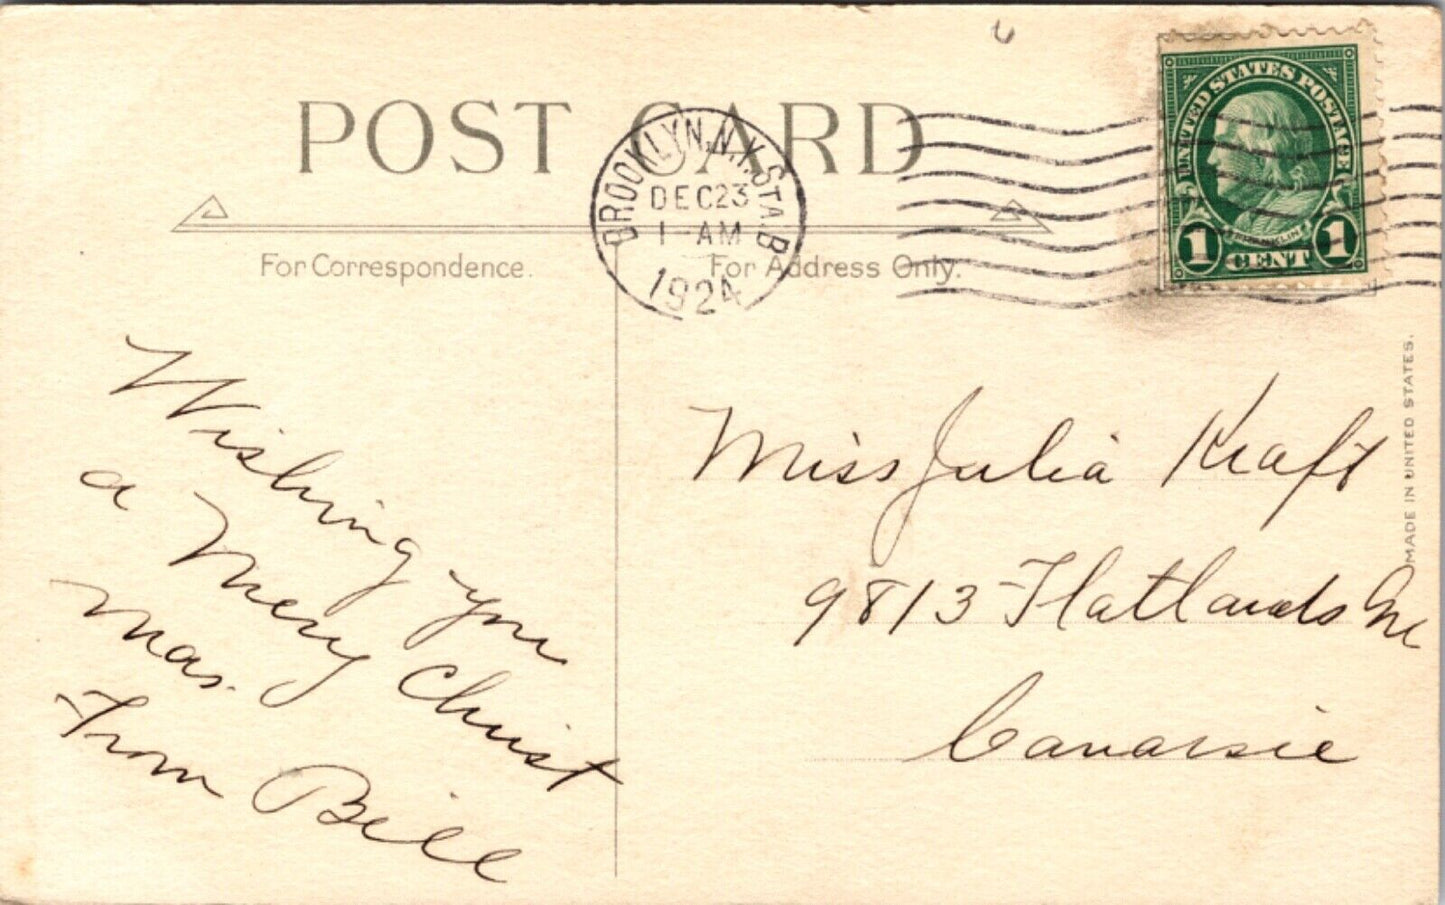 POST CARD
BROOKLYN, N.Y. STA. B
DEC 23
1-AM
1924
UNITED STATES POSTAGE
FRANKLIN
1 CENT 1
For Correspondence.
For Address Only.
Wishing you
a Merry Christ
mas.
From Bill
Miss Julia Kraft
9813 Flatlands Ave
Canarsie
MADE IN UNITED STATES.